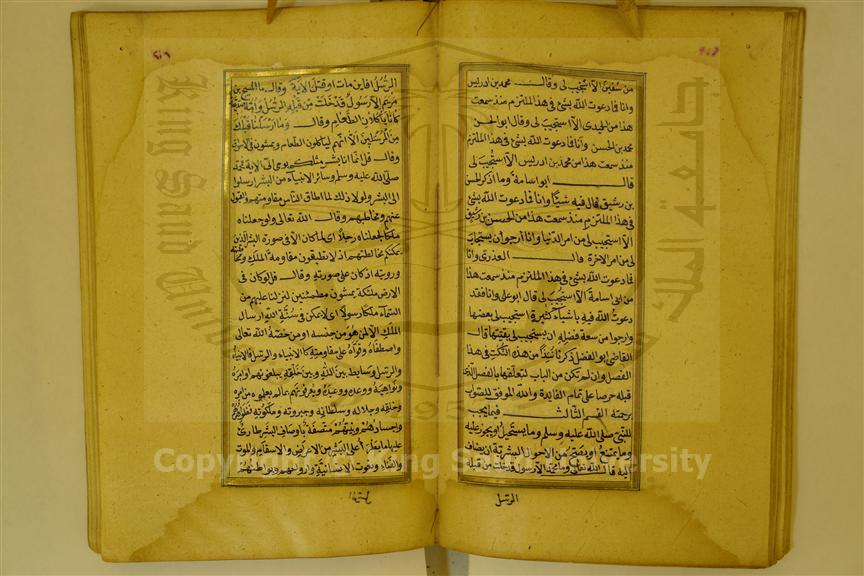 من سفين الا استجيب لى وقال محمد بن ادريس
وانا فما دعوت الله بشئ فى هذا الملتزم منذ سمعت
هذا من الحميدى الا استجيب لى وقال ابو الحسن
محمد بن الحسن وانا فما دعوت الله بشئ فى هذا الملتزم
منذ سمعت هذا من محمد بن ادريس الا استجيب لى
قال ابو اسامة وما اذكر الحسن
بن رشيق قال فيه شيئا وانا فما دعوت الله بشئ
فى هذا الملتزم منذ سمعت هذا من الحسن بن رشيق
الا استجيب لى من امر الدنيا وانا ارجو ان يستجاب
لى من امر الاخرة قال العذرى وانا
فما دعوت الله بشئ فى هذا الملتزم منذ سمعت هذا
من ابى اسامة الا استجيب لى قال ابو على وانا فقد
دعوت الله فيه باشياء كثيرة استجيب لى بعضها
وارجو من سعة فضله ان يستجيب لى بقيتها قال
القاضى ابو الفضل ذكرنا نبذا من هذه النكت فى هذا
الفصل وان لم تكن من الباب لتعلقها بالفصل الذى
قبله حرصا على تمام الفايدة والله الموفق للصواب
برحمته القسم الثالث فيما يجب
للنبى صلى الله عليه وسلم وما يستحيل او يجوز عليه
وما يمتنع او يصح من الاحوال البشرية ان يضاف
اليه قال الله تعالى وما محمد الا رسول قد خلت من قبله
الرسل
الرسل افاين مات او قتل الاية وقال ما المسيح بن
مريم الا رسول قد خلت من قبله الرسل وامه صديقة
كانا ياكلان الطعام وقال وما ارسلنا قبلك
من المرسلين الا انهم لياكلون الطعام ويمشون فى الاسواق
وقال قل انما انا بشر مثلكم يوحى الى الاية فمحمد
صلى الله عليه وسلم وسائر الانبياء من البشر ارسلوا
الى البشر ولولا ذلك لما اطاق الناس مقاومتهم والقبول
عنهم ومخاطبتهم وقال الله تعالى ولو جعلناه
ملكا لجعلناه رجلا اى لما كان الا فى صورة البشر الذين
يمكنكم مخالطتهم اذ لا تطيقون مقاومة الملك ومخاطبته
ورويته اذ كان على صورته وقال قل لو كان فى
الارض ملئكة يمشون مطمئنين لنزلنا عليهم من
السماء ملكا رسولا اى لا يمكن فى سنة الله ارسال
الملك الا لمن هو من جنسه او من خصه الله تعالى
واصطفاه وقواه على مقاومته كالانبياء والرسل فالانبياء
والرسل وسايط بين الله وبين خلقه يبلغونهم اوامره
ونواهيه ووعده ووعيده ويعرفونهم بما لم يعلموه من امره
وخلقه وجلاله وسلطانه وجبروته وملكوته فظواهرهم
واجسادهم وبنيتهم متصفة باوصاف البشر طارئ
عليها ما يطرأ على البشر من الاعراض والاسقام والموت
والفناء ونعوت الانسانية وارواحهم وبواطنهم
King Saud University
جامعة الملك
1957
Copyright © King Saud University